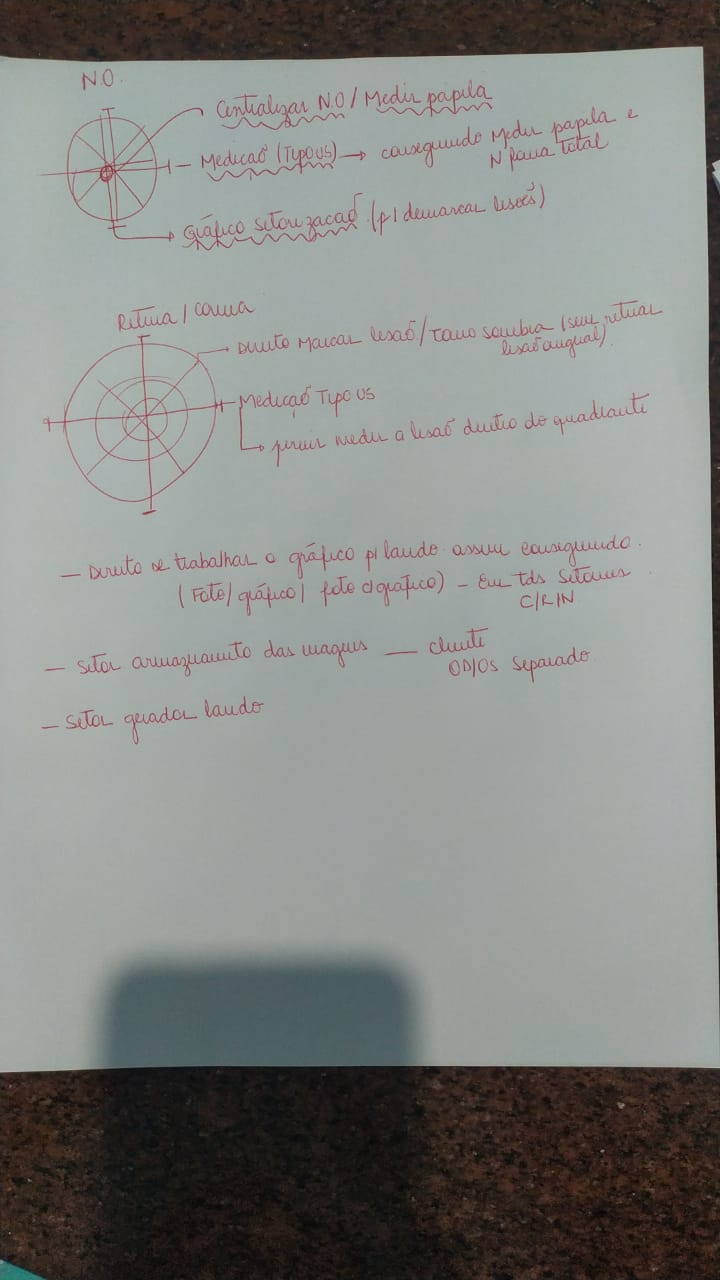 N.O.
Centralizar N.O / Medir papila
Medicaõ (Tipo US) → conseguindo Medir papila e
N para total
Gráfico setorizacaõ (p/ demarcar lesoẽs)
Retina / Cornea
Direito Marcar lesaõ / Tano sombra (sem
lesaõ
Medicaõ Tipo US
medir a lesaõ dentro do quadrante
— Direito se trabalhar o gráfico p/ laudo assim conseguindo.
(Foto / gráfico / foto c/ gráfico) – Em tds Setores
C/R/N
— Setor armazenamento das imagens — cliente
OD/OS Separado
— Setor gerador laudo